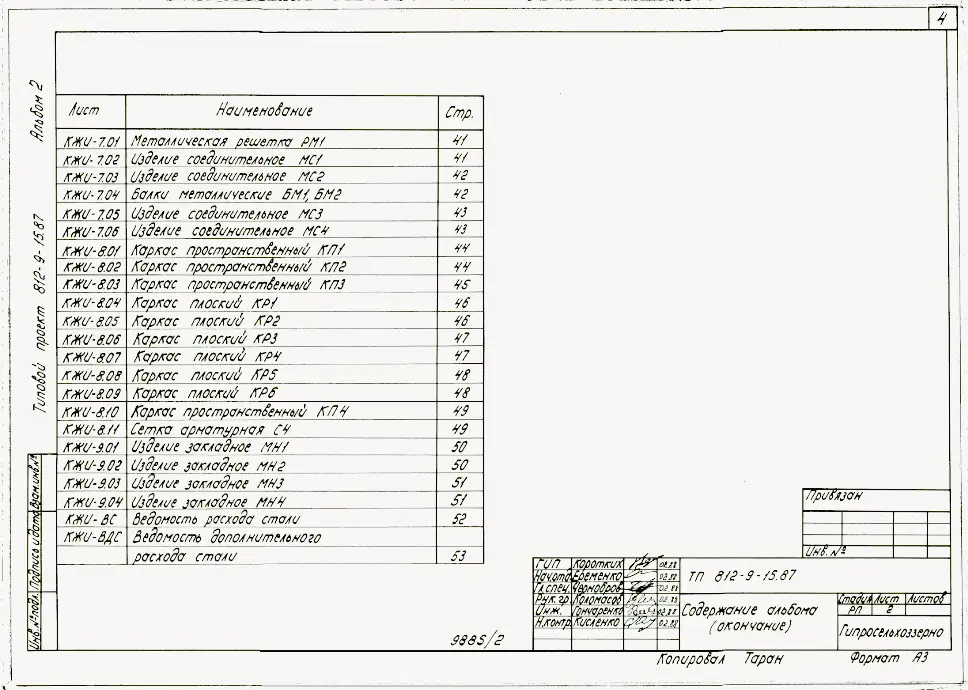 4
Альбом 2
Типовой проект 812-9-15.87
Лист Наименование Стр.
КЖИ-7.01 Металлическая решетка РМ1 41
КЖИ-7.02 Изделие соединительное МС1 41
КЖИ-7.03 Изделие соединительное МС2 42
КЖИ-7.04 Балки металлические БМ1, БМ2 42
КЖИ-7.05 Изделие соединительное МС3 43
КЖИ-7.06 Изделие соединительное МС4 43
КЖИ-8.01 Каркас пространственный КП1 44
КЖИ-8.02 Каркас пространственный КП2 44
КЖИ-8.03 Каркас пространственный КП3 45
КЖИ-8.04 Каркас плоский КР1 46
КЖИ-8.05 Каркас плоский КР2 46
КЖИ-8.06 Каркас плоский КР3 47
КЖИ-8.07 Каркас плоский КР4 47
КЖИ-8.08 Каркас плоский КР5 48
КЖИ-8.09 Каркас плоский КР6 48
КЖИ-8.10 Каркас пространственный КП4 49
КЖИ-8.11 Сетка арматурная С4 49
КЖИ-9.01 Изделие закладное МН1 50
КЖИ-9.02 Изделие закладное МН2 50
КЖИ-9.03 Изделие закладное МН3 51
КЖИ-9.04 Изделие закладное МН4 51
КЖИ-ВС Ведомость расхода стали 52
КЖИ-ВДС Ведомость дополнительного
расхода стали 53
Инв.№подл. Подпись и дата Взам.инв.№
Привязан
Инв.№
ГИП Коротких 02.88
Нач.отд Еременко 02.88
Гл.спец. Чернобров 02.88
Рук.гр. Коломасов 02.88
Инж. Гончаренко 02.88
Н.контр. Кисленко 02.88
ТП 812-9-15.87
Содержание альбома
(окончание)
Стадия Лист Листов
РП 2
Гипросельхоззерно
9885/2
Копировал Таран Формат А3